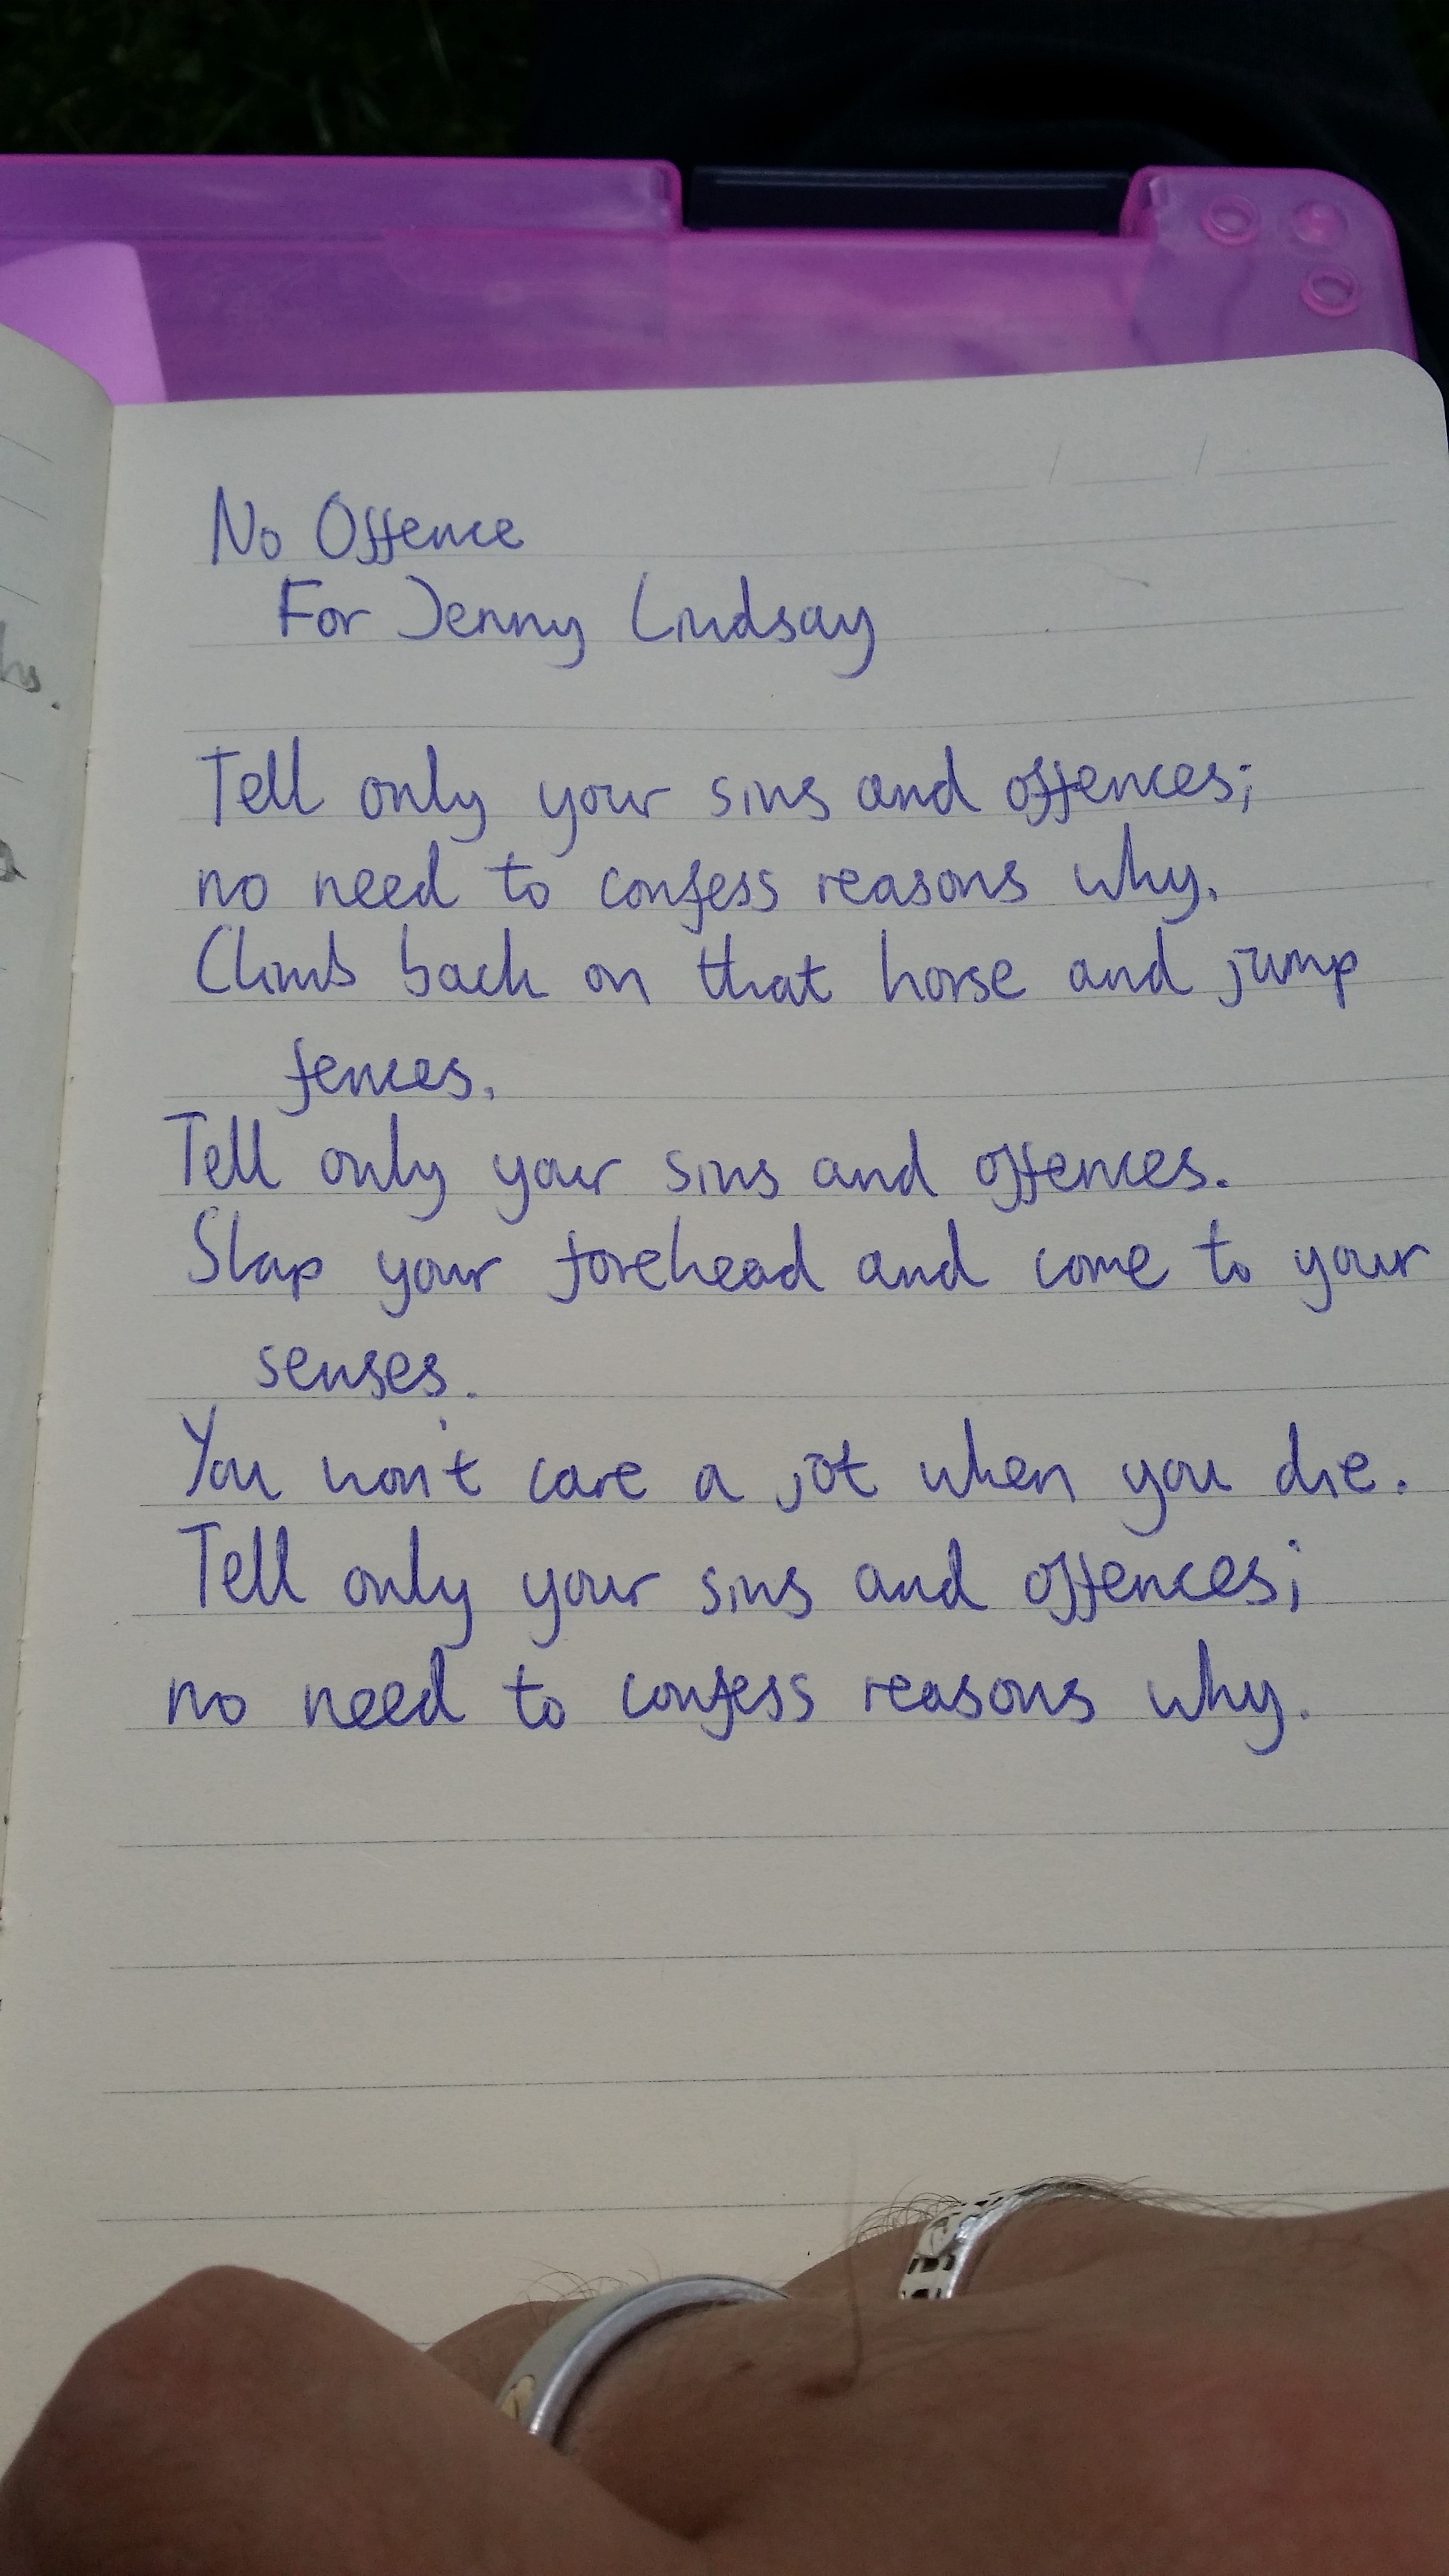 No Offence
For Jenny Lindsay
Tell only your sins and offences;
no need to confess reasons why.
Climb back on that horse and jump
fences.
Tell only your sins and offences.
Slap your forehead and come to your
senses.
You won't care a jot when you die.
Tell only your sins and offences;
no need to confess reasons why.